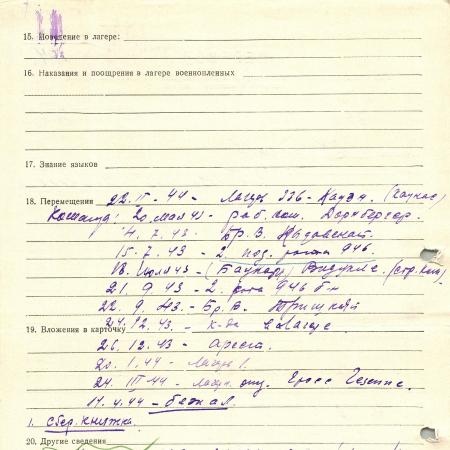 15. Поведение в лагере:
16. Наказания и поощрения в лагере военнопленных
17. Знание языков
18. Перемещения 22. II - 44 - Лагерь 336 - Каунас (Каунас)
Команд: 20. мая 43 - раб. ком. Дорнбергер.
4. 7. 43 - Бр. В.
15. 7. 43 - 2 поз. рота 946.
18. Июля 43 - (Баукор)
21. 9. 43 - 2. рота 946 б-н
22. 9. 43 - Бр. В. Тришкяй
19. Вложения в карточку 24. 12. 43. - к-да в лагере
26. 12. 43 - арест.
20. 1. 44 - лагерь 1.
24. III - 44 - Гросс
11. 4. 44 - бежал.
1. сбер. книжка.
20. Другие сведения